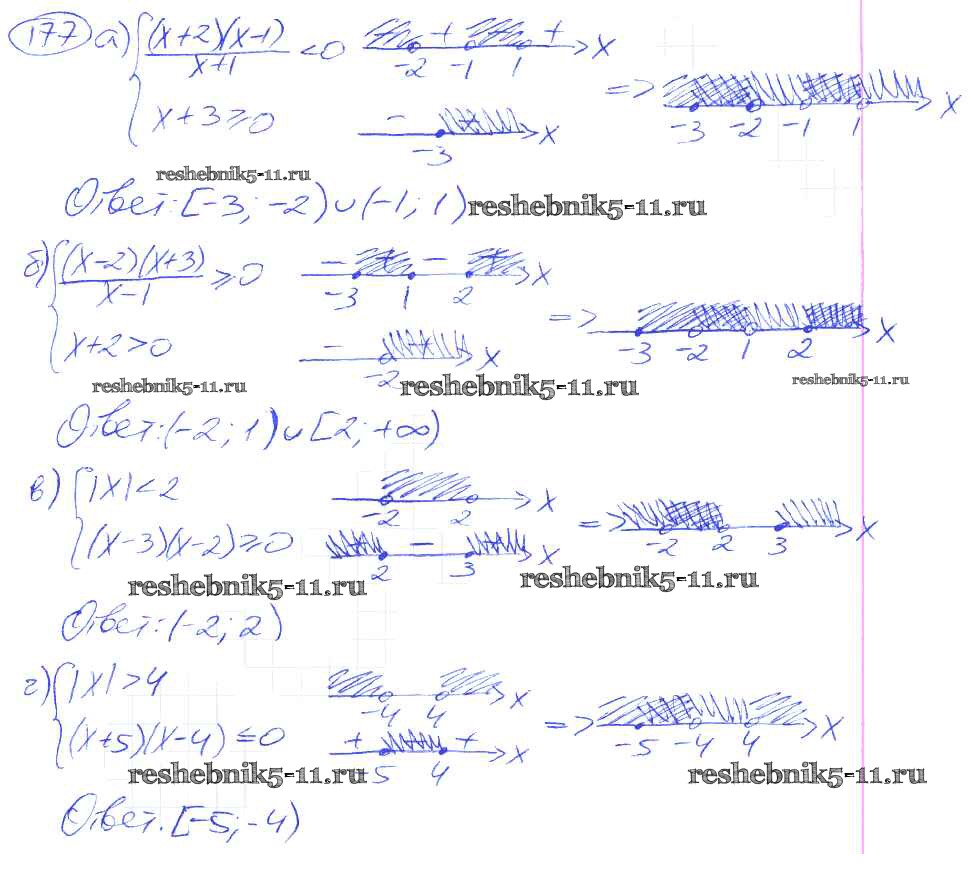 177 а) { (x+2)(x-1) / x+1 < 0   + +   -2 -1 1 x
x+3 ≥ 0   - +   -3 x   =>   -3 -2 -1 1 x
reshebnik5-11.ru
Ответ: [-3; -2) ∪ (-1; 1) reshebnik5-11.ru
б) { (x-2)(x+3) / x-1 ≥ 0   - + - +   -3 1 2 x
x+2 > 0   - +   -2 x   =>   -3 -2 1 2 x
reshebnik5-11.ru reshebnik5-11.ru reshebnik5-11.ru
Ответ: (-2; 1) ∪ [2; +∞)
в) { |x| < 2   -2 2 x
(x-3)(x-2) ≥ 0   + - +   2 3 x   =>   -2 2 3 x
reshebnik5-11.ru reshebnik5-11.ru
Ответ: (-2; 2)
г) { |x| > 4   -4 4 x
(x+5)(x-4) ≤ 0   + - +   5 4 x   =>   -5 -4 4 x
reshebnik5-11.ru reshebnik5-11.ru
Ответ. [-5; -4)